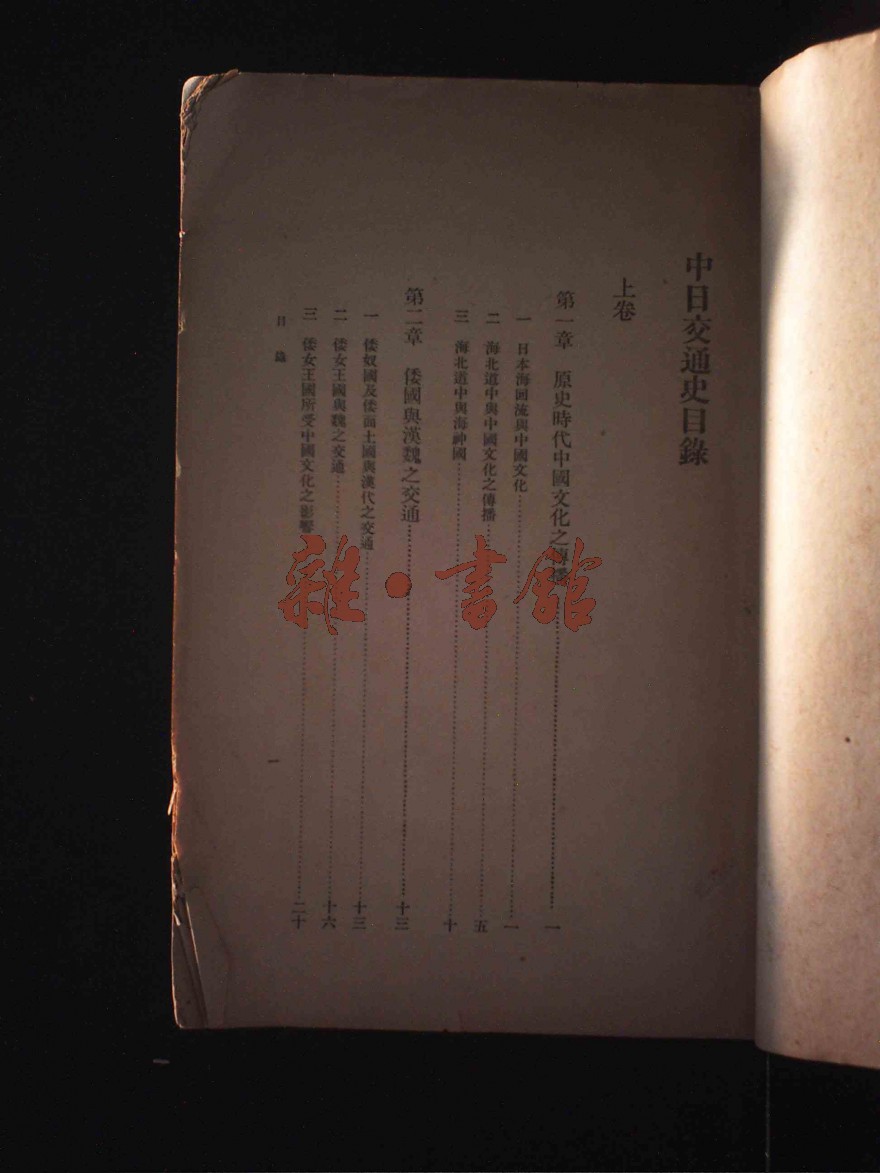 中日交通史目錄
上卷
第一章 原史時代中國文化之傳播……一
一 日本海囘流與中國文化……一
二 海北道中與中國文化之傳播……五
三 海北道中與海神國……十
第二章 倭國與漢魏之交通……十三
一 倭奴國及倭面土國與漢代之交通……十三
二 倭女王國與魏之交通……十六
三 倭女王國所受中國文化之影響……二十
目錄
一
雜·書館